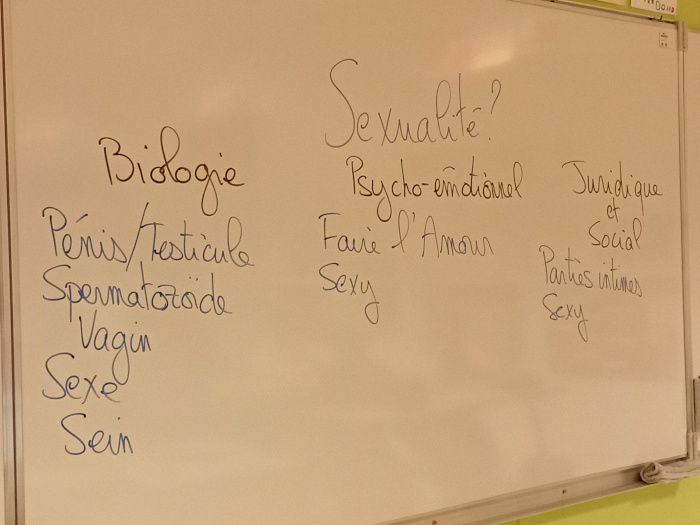 Sexualité?
Biologie
Pénis/Testicule
Spermatozoïde
Vagin
Sexe
Sein
Psycho-émotionnel
Faire l'Amour
Sexy
Juridique
et
Social
Parties intimes
Sexy